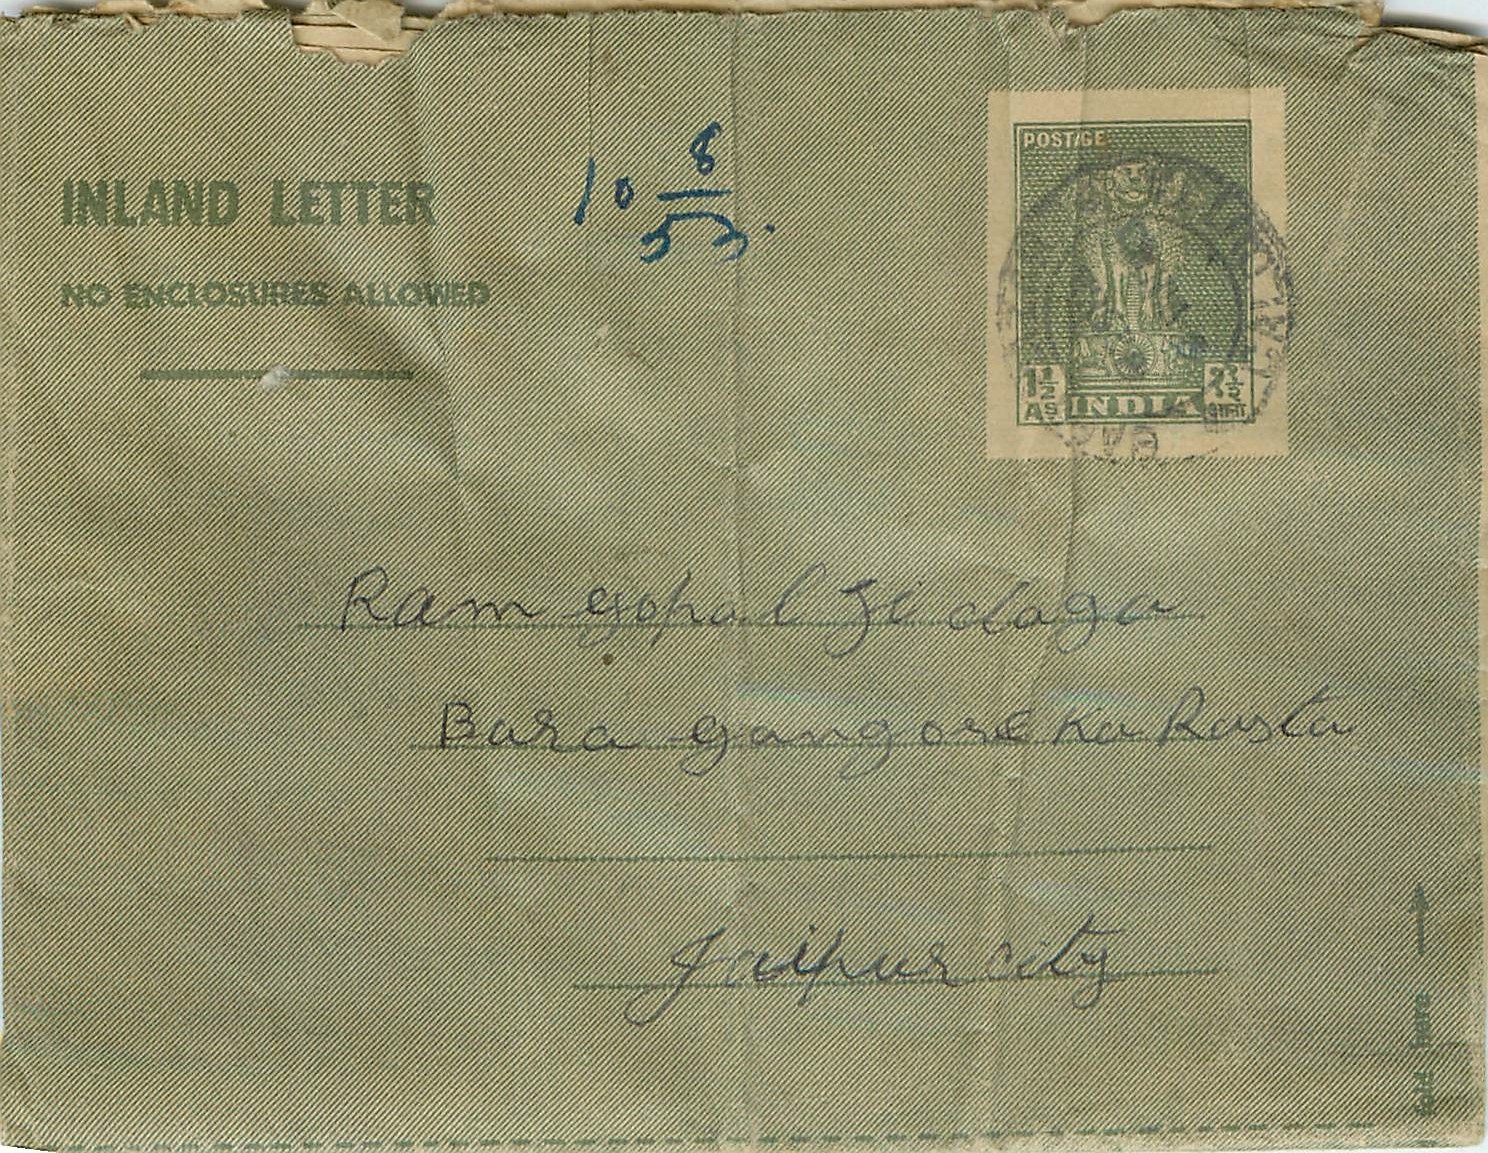 INLAND LETTER
NO ENCLOSURES ALLOWED
10 8/53.
POSTAGE
1½ AS
INDIA
१½ आना
Ram gopal Ji daga
Bara gangore ka Rasta
Jaipur city
fold here